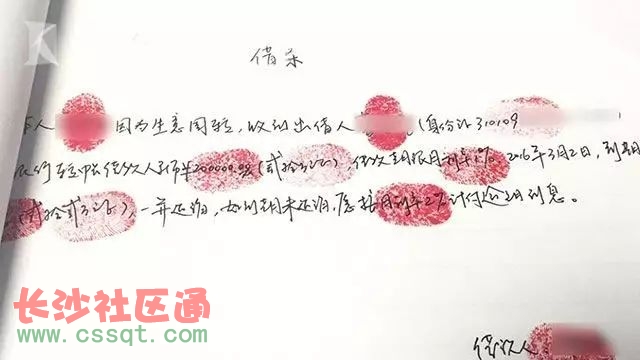 借条
本人 因为生意周转，收到出借人 （身份证310109
银行转账借款人民币￥200000.00（贰拾万元），借款期限月利率1%，2016年3月2日，到期
（贰拾贰万元），一并还清，如到期未还清，愿按月利率2%计付逾期利息。
借款人
长沙社区通
www.cssqt.com